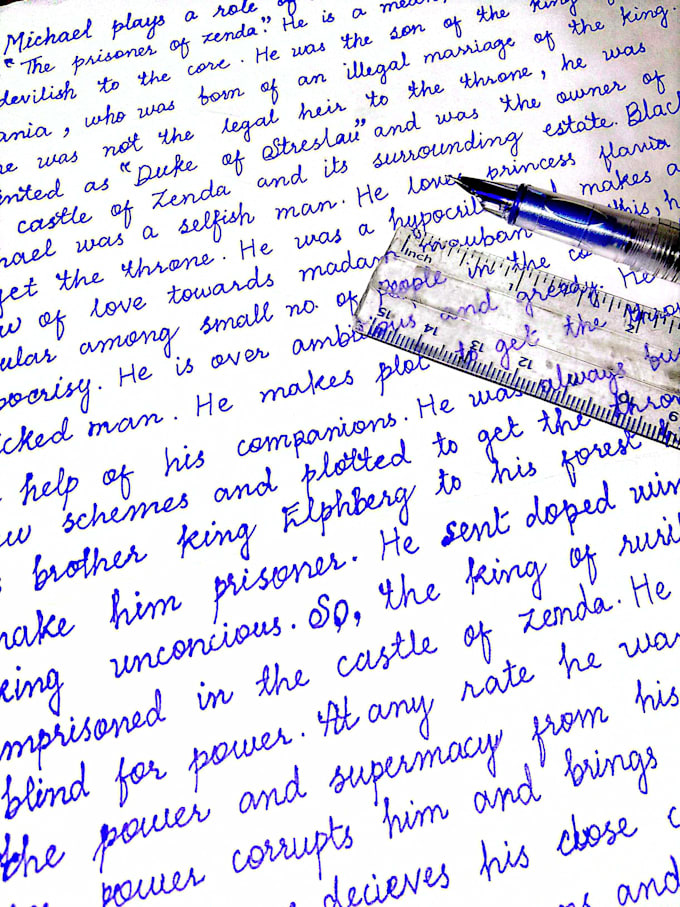 Michael plays a role of
"The prisoner of zenda". He is a mean,
devilish to the core. He was the son of the king
ania, who was born of an illegal marriage of the king.
he was not the legal heir to the throne, he was
ented as "Duke of Streslau" and was the owner of
castle of Zenda and its surrounding estate. Black
hael was a selfish man. He loves princess flavia
get the throne. He was a hypocrite makes a
w of love towards madam this, h
ular among small no. of people in the co
pocrisy. He is over ambitious and greedy. He
icked man. He makes plot to get the thro
help of his companions. He was always bu
ew schemes and plotted to get the thro
s brother king Elphberg to his forest
make him prisoner. He sent doped win
king unconcious. So, the king of ruri
mprisoned in the castle of zenda. He
blind for power. At any rate he wa
the power and supermacy from his
power corrupts him and brings
decieves his close
and
inch
1
2
15 14 13 12 9